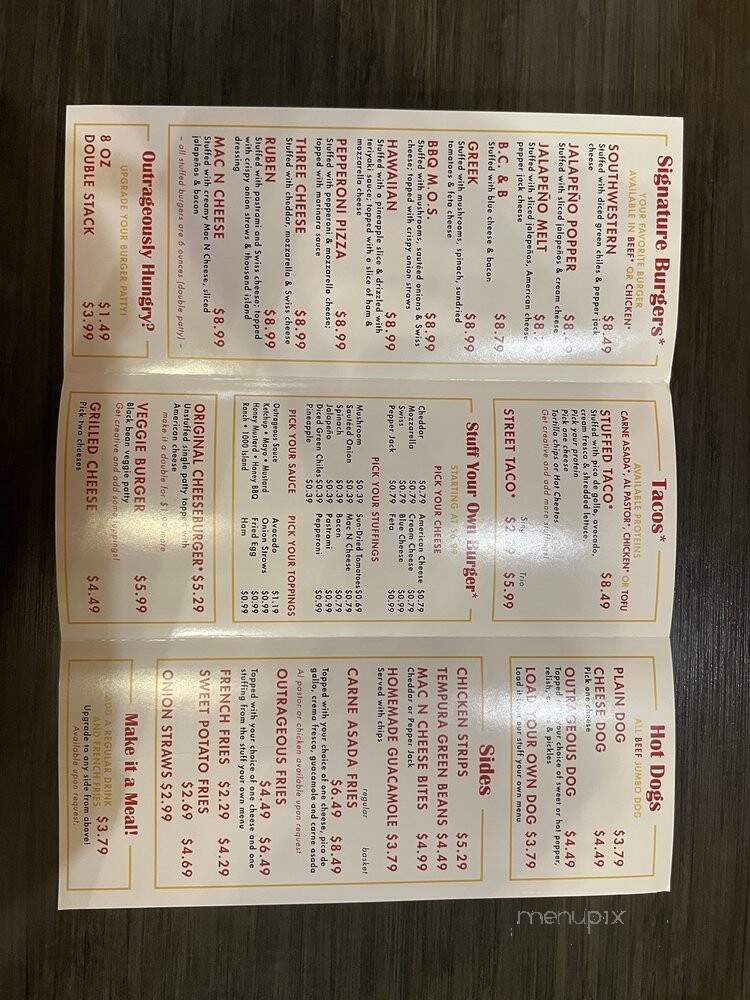 Signature Burgers*
YOUR FAVORITE BURGER
AVAILABLE IN BEEF* OR CHICKEN*
SOUTHWESTERN $8.49
Stuffed with diced green chiles & pepper jack
cheese
JALAPEÑO POPPER
Stuffed with sliced jalapeños & cream cheese
JALAPEÑO MELT
Stuffed with sliced jalapeños, American cheese
pepper jack cheese
B.C. & B $8.79
Stuffed with blue cheese & bacon
GREEK $8.99
Stuffed with mushrooms, spinach, sundried
tomatoes & feta cheese
BBQ M.O.S. $8.99
Stuffed with mushrooms, sautéed onions & Swiss
cheese; topped with crispy onion straws
HAWAIIAN $8.99
Stuffed with a pineapple slice & drizzled with
teriyaki sauce; topped with a slice of ham &
mozzarella cheese
PEPPERONI PIZZA $8.99
Stuffed with pepperoni & mozzarella cheese;
topped with marinara sauce
THREE CHEESE $8.99
Stuffed with cheddar, mozzarella & Swiss cheese
RUBEN $8.99
Stuffed with pastrami and Swiss cheese; topped
with crispy onion straws & thousand island
dressing
MAC N CHEESE $8.99
Stuffed with creamy Mac N Cheese, sliced
jalapeños & bacon
– all stuffed burgers are 6 ounces (double patty) –
Outrageously Hungry?
UPGRADE YOUR BURGER PATTY!
8 OZ $1.49
DOUBLE STACK $3.99
Tacos*
AVAILABLE PROTEINS
CARNE ASADA*, AL PASTOR*, CHICKEN* OR TOFU
STUFFED TACO* $8.49
Stuffed with pico de gallo, avocado,
cream fresca & shredded lettuce.
Pick your protein
Pick one cheese
Tortilla chips or Hot Cheetos
Get creative and add more stuffings!
Trio
STREET TACO* $5.99
Stuff Your Own Burger*
STARTING AT
PICK YOUR CHEESE
Cheddar $0.79 American Cheese $0.79
Mozzarella $0.79 Cream Cheese $0.79
Swiss $0.79 Blue Cheese $0.99
Pepper Jack $0.79 Feta $0.99
PICK YOUR STUFFINGS
Mushroom $0.39 Sun-Dried Tomatoes $0.69
Sautéed Onion $0.39 Mac N Cheese $0.79
Spinach $0.39 Bacon $0.79
Jalapeño $0.39 Pastrami $0.99
Diced Green Chiles $0.39 Pepperoni $0.99
Pineapple $0.39
PICK YOUR SAUCE
Outrageous Sauce
Ketchup • Mayo • Mustard
Honey Mustard • Honey BBQ
Ranch • 1000 Island
PICK YOUR TOPPINGS
Avocado $1.19
Onion Straws $0.99
Fried Egg $0.99
Ham $0.99
ORIGINAL CHEESEBURGER* $5.29
Unstuffed single patty topped with
American cheese
make it a double for more
VEGGIE BURGER $5.99
Black bean veggie patty
Get creative and add some toppings!
GRILLED CHEESE $4.49
Pick two cheeses
Hot Dogs
ALL BEEF JUMBO DOG
PLAIN DOG $3.79
CHEESE DOG $4.49
Pick one cheese
OUTRAGEOUS DOG $4.49
Topped with your choice of sweet or hot pepper,
relish, & pickles
LOAD YOUR OWN DOG $3.79
Load it from our stuff your own menu
Sides
CHICKEN STRIPS $5.29
TEMPURA GREEN BEANS $4.49
MAC N CHEESE BITES $4.99
Cheddar or Pepper Jack
HOMEMADE GUACAMOLE $3.79
Served with chips
regular basket
CARNE ASADA FRIES $6.49 $8.49
Topped with your choice of one cheese, pico de
gallo, crema fresca, guacamole and carne asada
Al pastor or chicken available upon request
OUTRAGEOUS FRIES $4.49 $6.49
Topped with your choice of one cheese and one
stuffing from the stuff your own menu
FRENCH FRIES $2.29 $4.29
SWEET POTATO FRIES $2.69 $4.69
ONION STRAWS $2.99
Make it a Meal!
ADD A REGULAR DRINK
AND FRENCH FRIES $3.79
Upgrade to any side from above!
Available upon request.
menupix